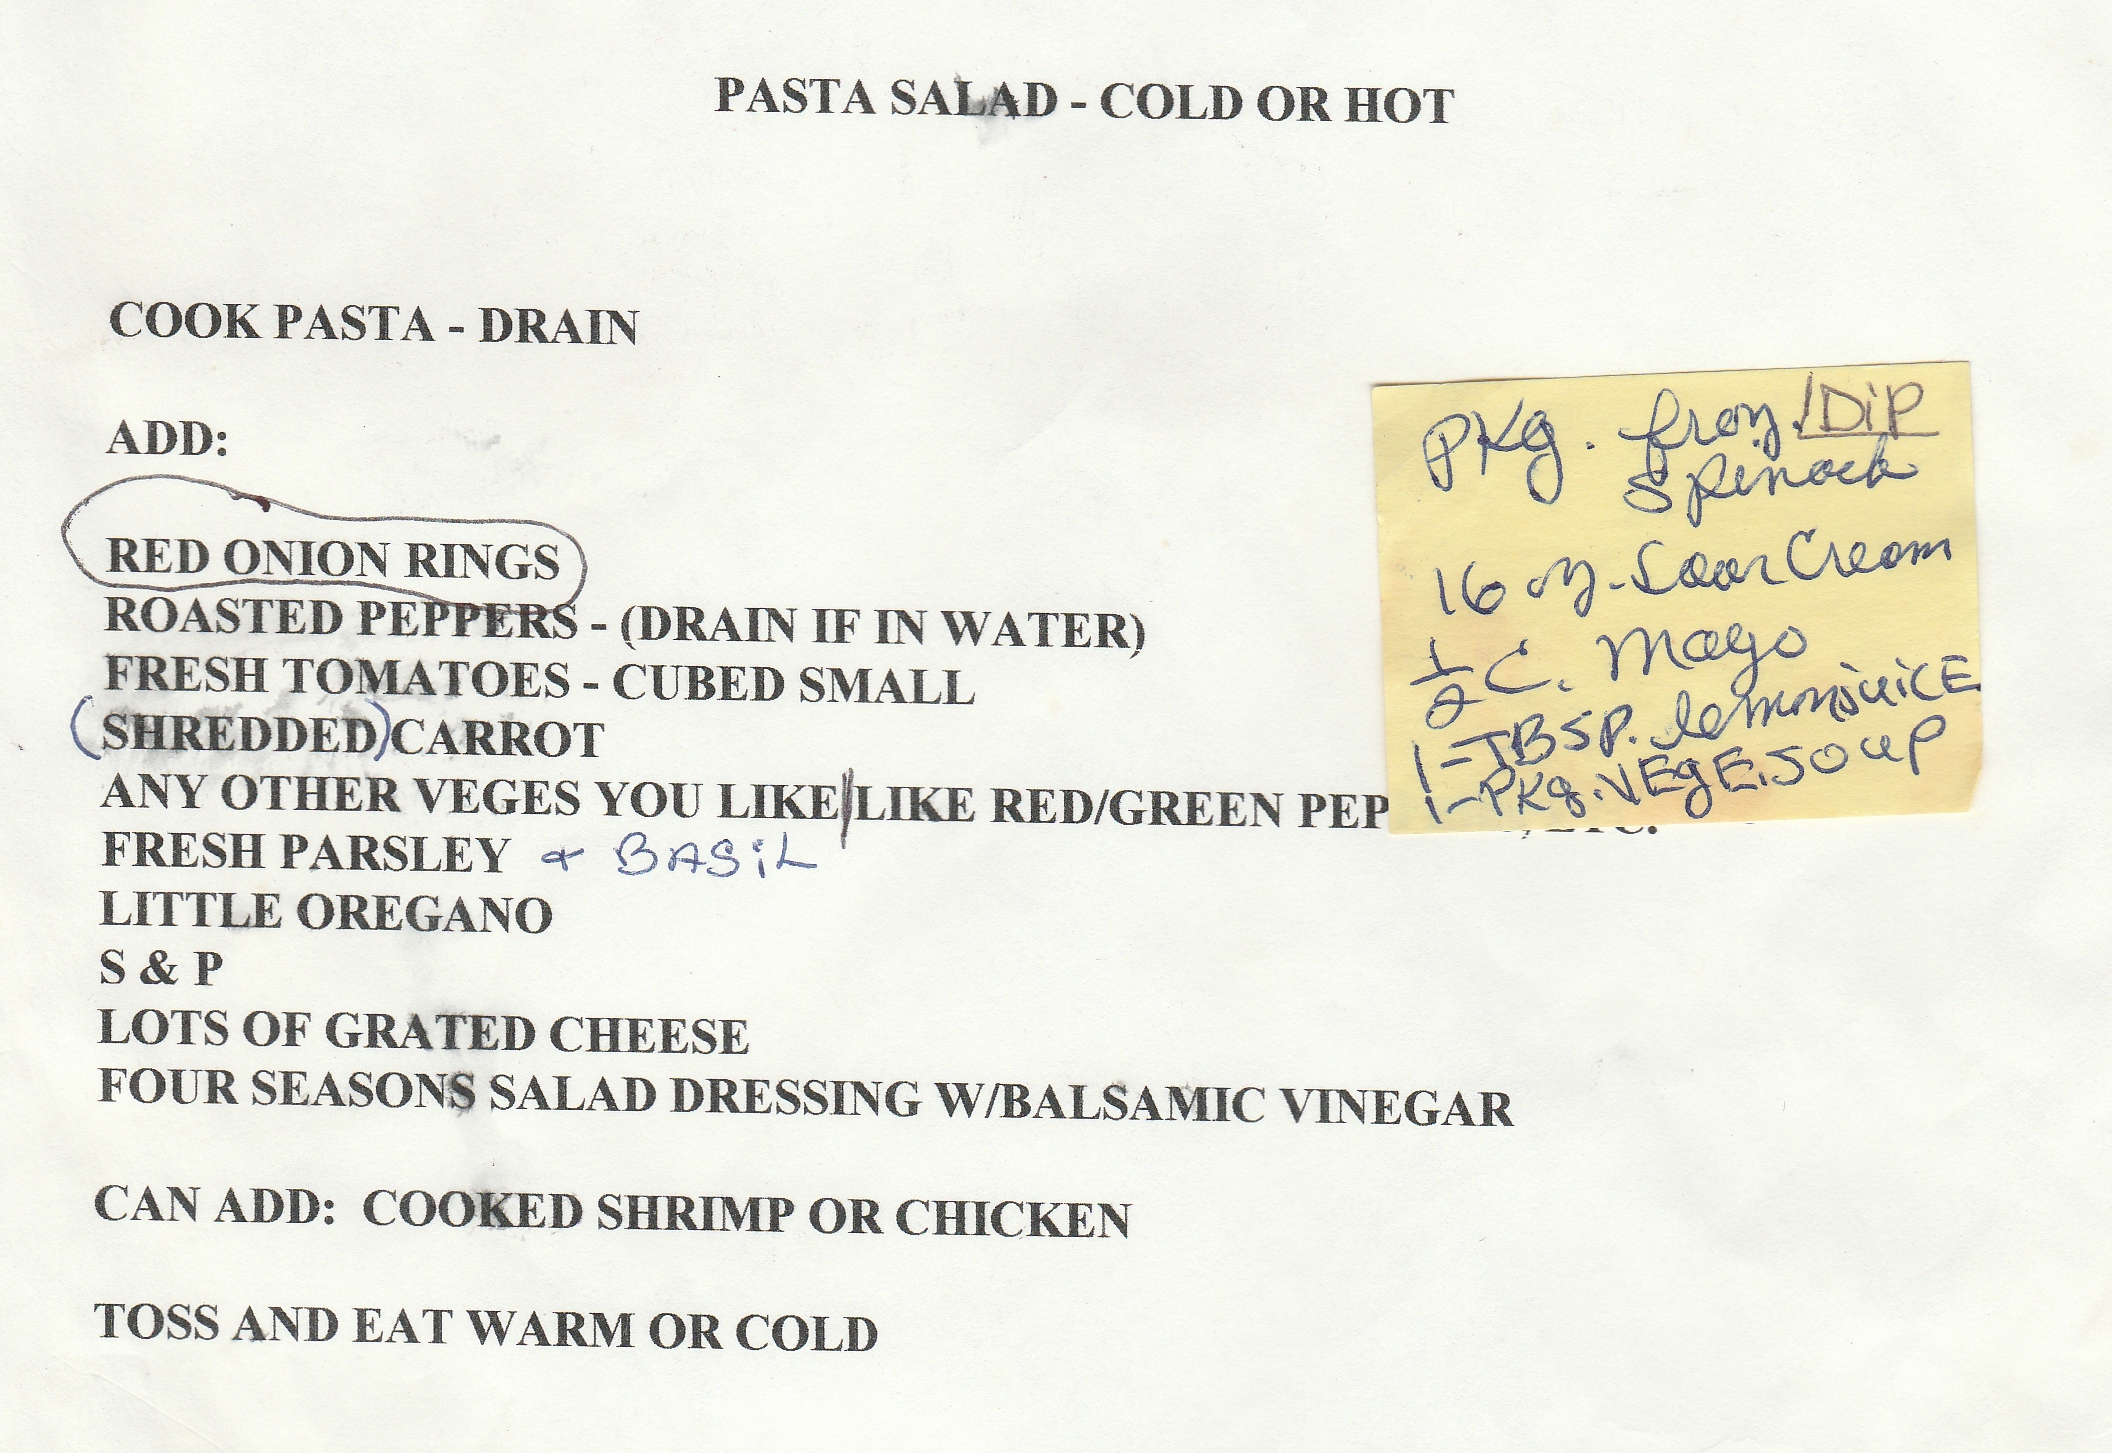 PASTA SALAD - COLD OR HOT
COOK PASTA - DRAIN
ADD:
RED ONION RINGS
ROASTED PEPPERS - (DRAIN IF IN WATER)
FRESH TOMATOES - CUBED SMALL
(SHREDDED) CARROT
ANY OTHER VEGES YOU LIKE/LIKE RED/GREEN PEP
FRESH PARSLEY + BASIL
LITTLE OREGANO
S & P
LOTS OF GRATED CHEESE
FOUR SEASONS SALAD DRESSING W/BALSAMIC VINEGAR
CAN ADD: COOKED SHRIMP OR CHICKEN
TOSS AND EAT WARM OR COLD
DiP
PKg. froz.
Spinach
16 oz. Sour Cream
1/2 C. Mayo
1-TBSP. lemonjuiCE
1-PKg. VEgE. SOUP